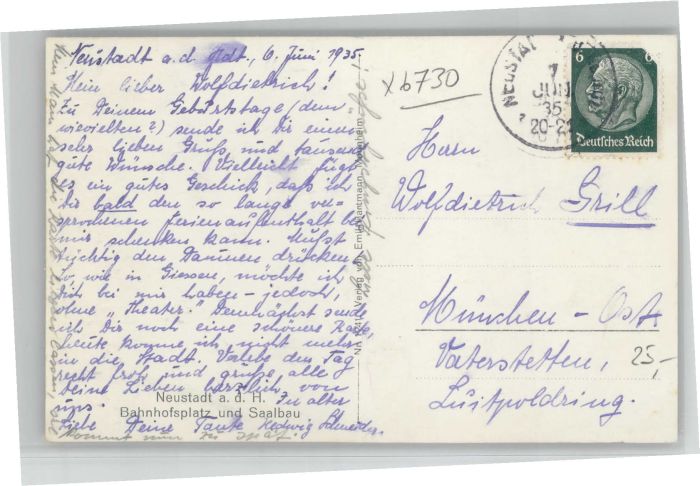 Neustadt a. d. Hdt., 6. Juni 1935.
Mein lieber Wolfdietrich!
Zu Deinem Geburtstage (dem
wievielten?) sende ich Dir einen
sehr lieben Gruß und tausend
gute Wünsche. Vielleicht fügt
es ein gutes Geschick, daß ich
Dir bald den so lange ver-
sprochenen Ferienaufenthalt bei
mir schenken kann. Mußt
tüchtig den Daumen drücken.
So, wie in Giessen, möchte ich
Dich bei mir haben - jedoch,
ohne "Theater." Demnächst sende
ich Dir noch eine schönere Karte,
heute komme ich nicht mehr
in die Stadt. Verlebe den Tag
recht froh und grüße alle
Deine Lieben herzlich von
uns. In alter
Liebe Deine Tante Hedwig Schneider.
kommt nun zu spät.
Neustadt a. d. H.
Bahnhofsplatz und Saalbau
Verlag von Emil Hartmann, Mannheim
x b730
NEUSTADT
7
JUNI
35
20-21
6
6
Deutsches Reich
Herrn
Wolfdietrich Grill
München - Ost
Vaterstetten,
Luitpoldring.
25,-